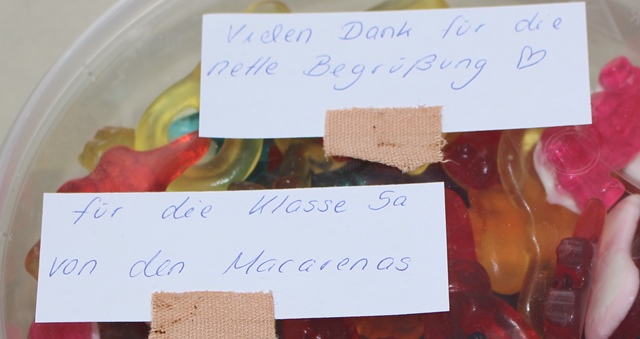 Vielen Dank für die
nette Begrüßung ♡
für die Klasse 5a
von den Macarenas